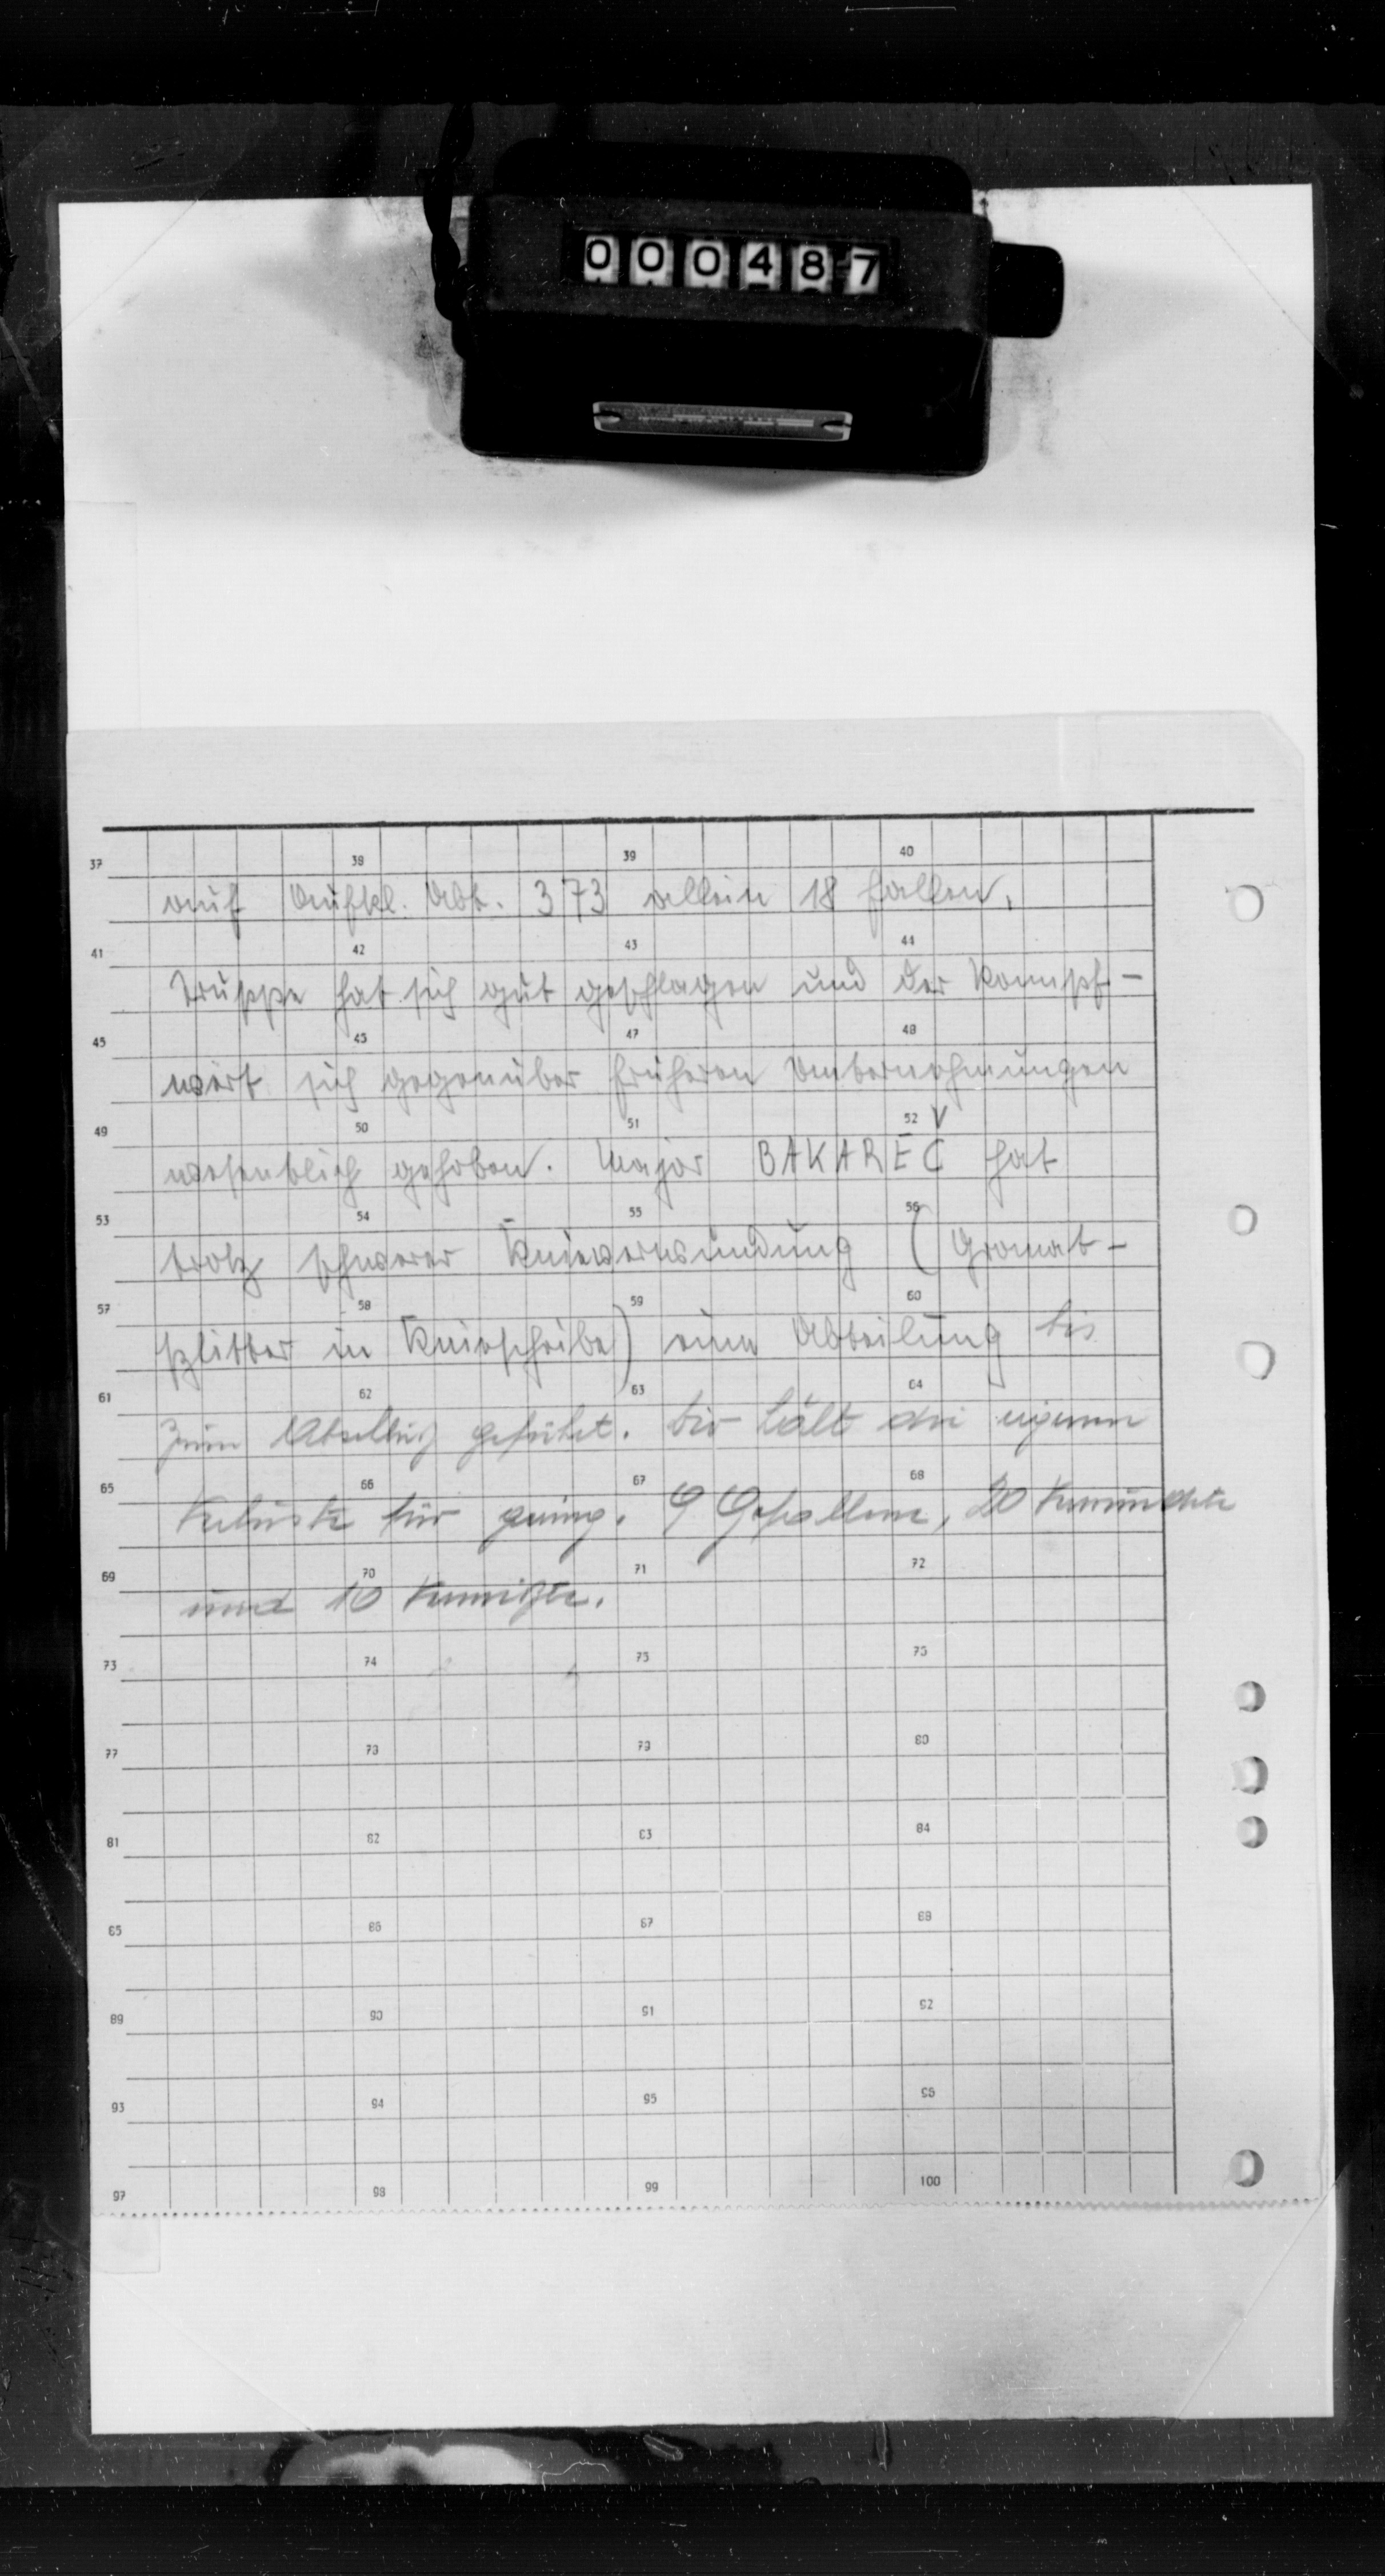 000487
37 38 39 40
auf Aufkl. Abt. 373 allein 18 fallen.
41 42 43 44
Truppe hat sich gut geschlagen und der Kampf-
45 45 47 48
wert sich gegenüber früheren Unternehmungen
49 50 51 52
wesentlich gehoben. Major BAKAREČ hat
53 54 55 56
trotz schwerer Knieverwundung (Granat-
57 58 59 60
splitter in Kniescheibe) eine Abteilung bis
61 62 63 64
zum Abschluß geführt. Div hält die eigenen
65 66 67 68
Verluste für gering. 9 Gefallene, 20 Verwundete
69 70 71 72
und 10 Vermißte.
73 74 75 76
77 78 79 80
81 82 83 84
85 86 87 88
89 90 91 92
93 94 95 96
97 98 99 100